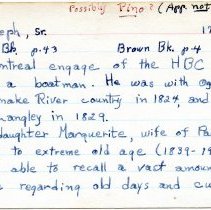 Possibly Pino? (App. not
eph, Sr. 17
Bk. p. 43 Brown Bk. p. 4
ntreal engage of the HBC
a boatman. He was with Og
nake River country in 1824, and
angley in 1829.
daughter Marguerite, wife of Pa
to extreme old age (1839-19
able to recall a vast amount
s regarding old days and cu